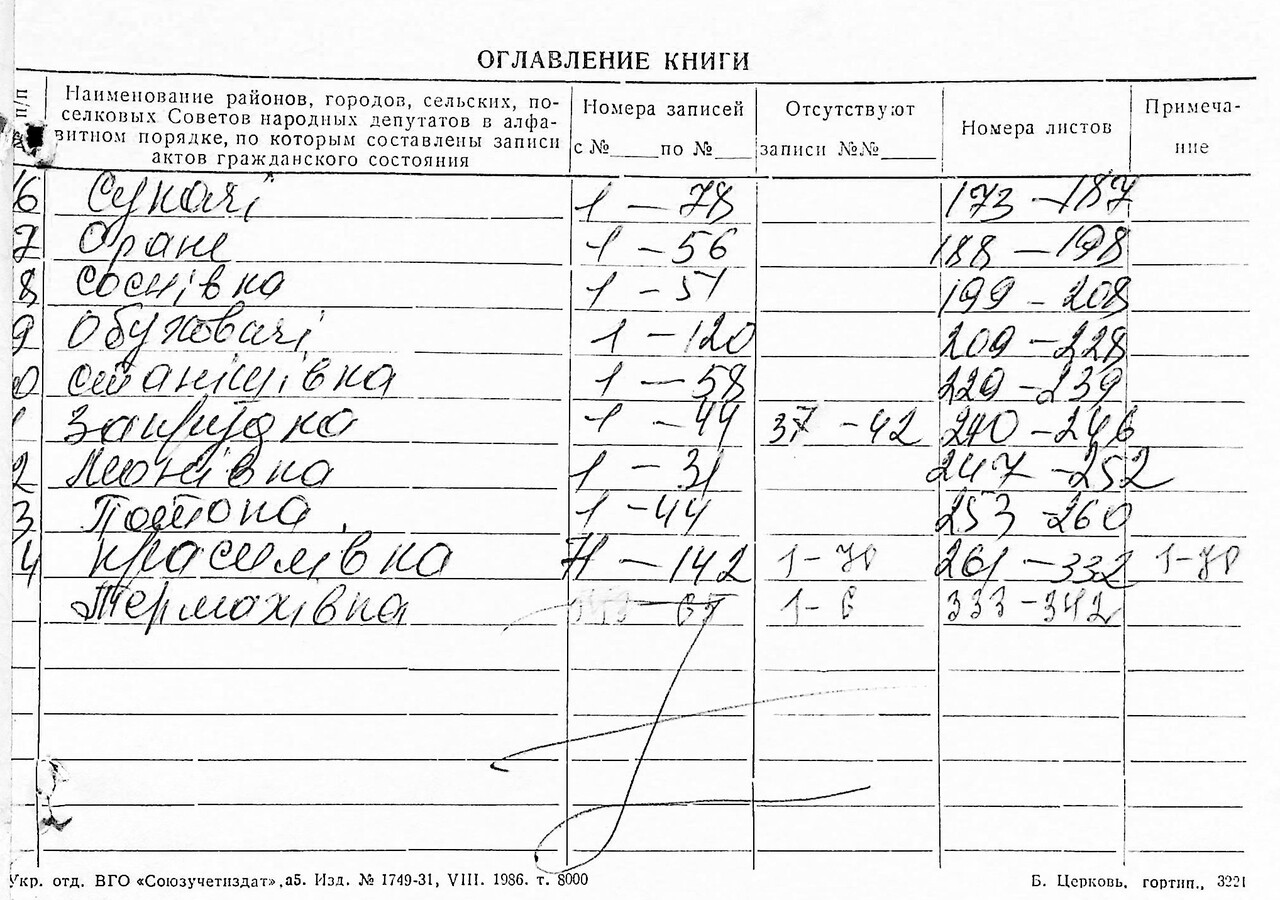 ОГЛАВЛЕНИЕ КНИГИ
п/п
Наименование районов, городов, сельских, по-
селковых Советов народных депутатов в алфа-
витном порядке, по которым составлены записи
актов гражданского состояния
Номера записей
с №____ по №____
Отсутствуют
записи №№____
Номера листов
Примеча-
ние
6 Сукачі 1 – 78 173 – 187
7 Оране 1 – 56 188 – 198
8 Соснівка 1 – 51 199 – 208
9 Обуховичі 1 – 120 209 – 228
0 Станішівка 1 – 58 229 – 239
1 Запрудка 1 – 44 37 – 42 240 – 246
2 1 – 31 247 – 252
3 Потока 1 – 44 253 – 260
4 Красилівка 71 – 142 1 – 70 261 – 332 1 – 70
Термахівка – 65 1 – 6 333 – 342
Укр. отд. ВГО «Союзучетиздат», а5. Изд. № 1749-31, VIII. 1986. т. 8000
Б. Церковь, гортип., 3221